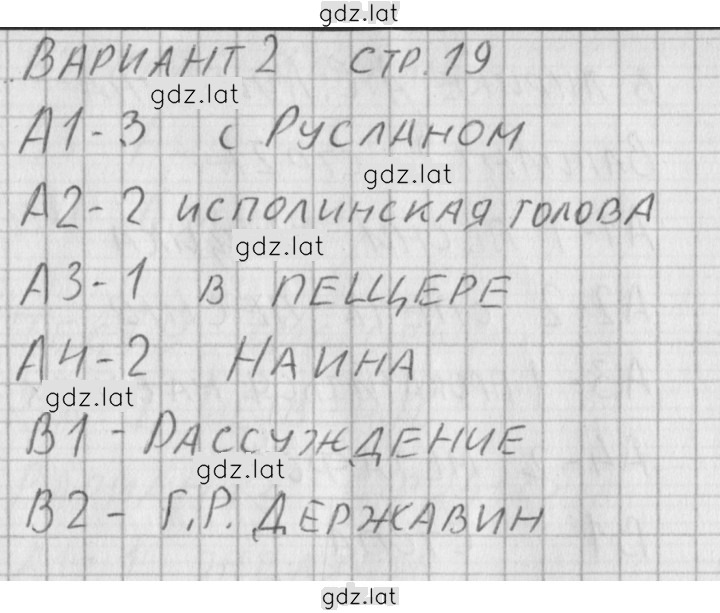 gdz.lat
ВАРИАНТ 2 СТР. 19
gdz.lat
А1-3 с РУСЛАНОМ
gdz.lat
А2-2 ИСПОЛИНСКАЯ ГОЛОВА
gdz.lat
А3-1 В ПЕЩЕРЕ
А4-2 НАИНА
gdz.lat
В1 - РАССУЖДЕНИЕ
gdz.lat
В2 - Г.Р. ДЕРЖАВИН
gdz.lat